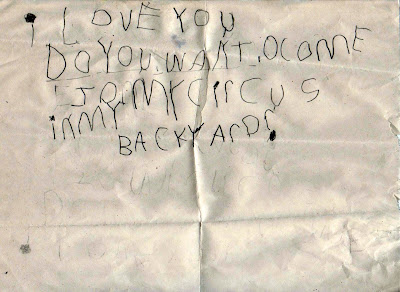 I LOVE YOU
DO YOU WANT TO COME
TO MY CIRCUS
iN MY
BACKYARD?